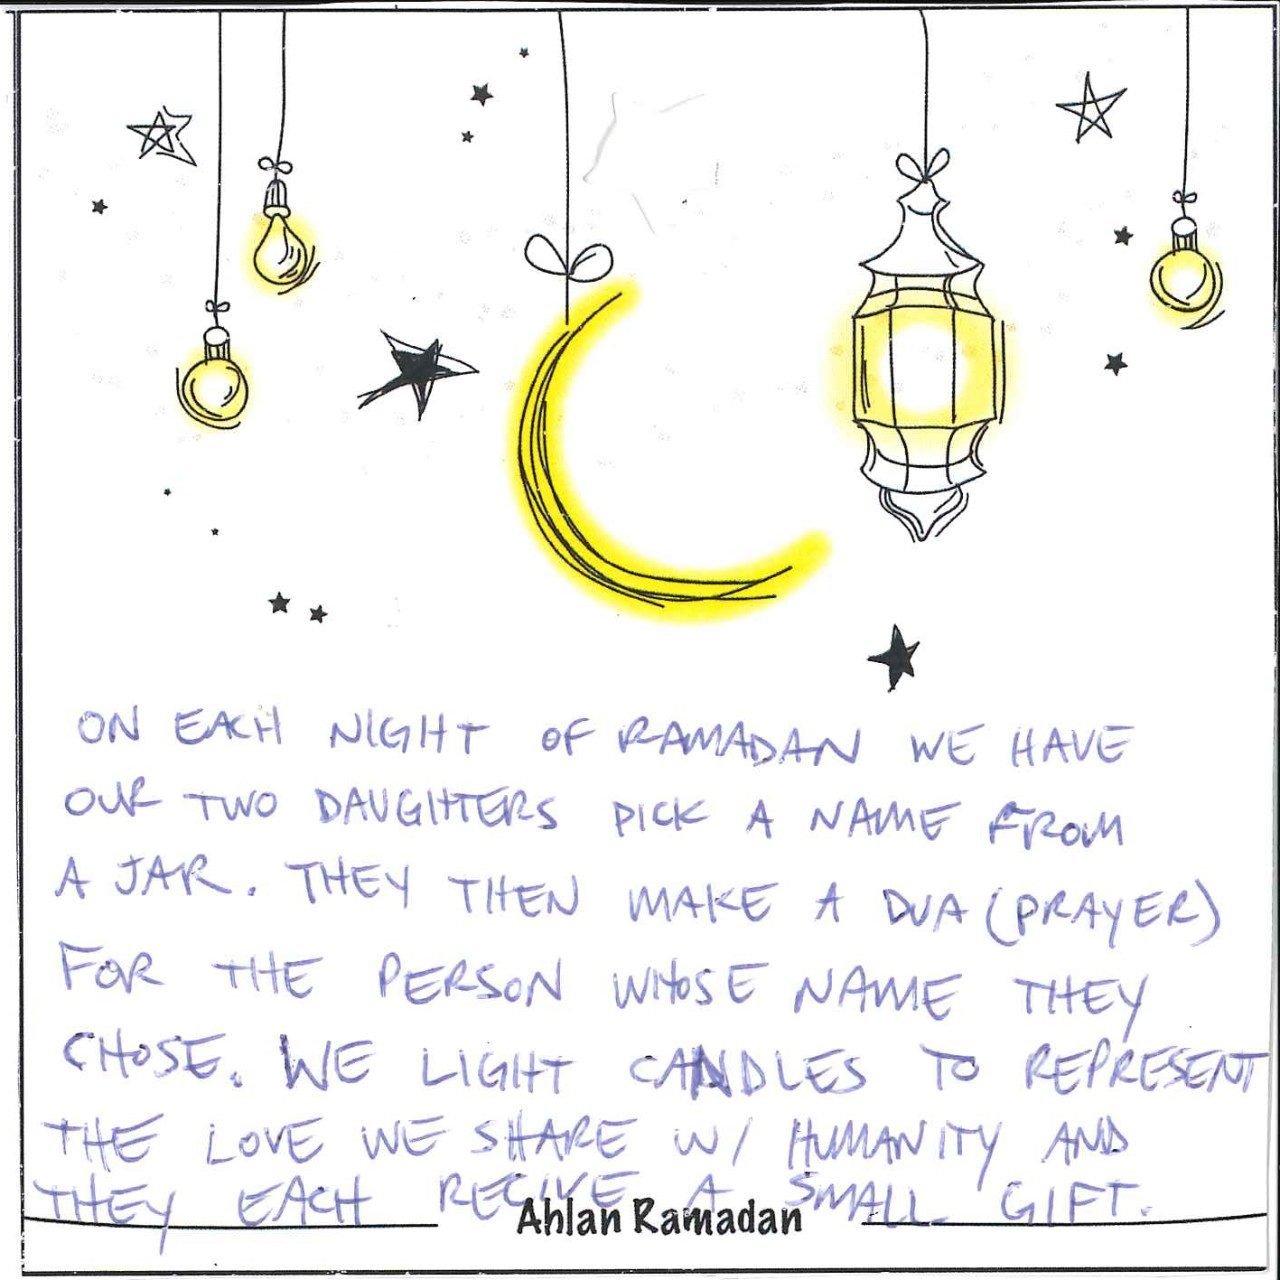 ON EACH NIGHT OF RAMADAN WE HAVE
OUR TWO DAUGHTERS PICK A NAME FROM
A JAR. THEY THEN MAKE A DUA (PRAYER)
FOR THE PERSON WHOSE NAME THEY
CHOSE. WE LIGHT CANDLES TO REPRESENT
THE LOVE WE SHARE W/ HUMANITY AND
THEY EACH RECIVE A SMALL GIFT.
Ahlan Ramadan